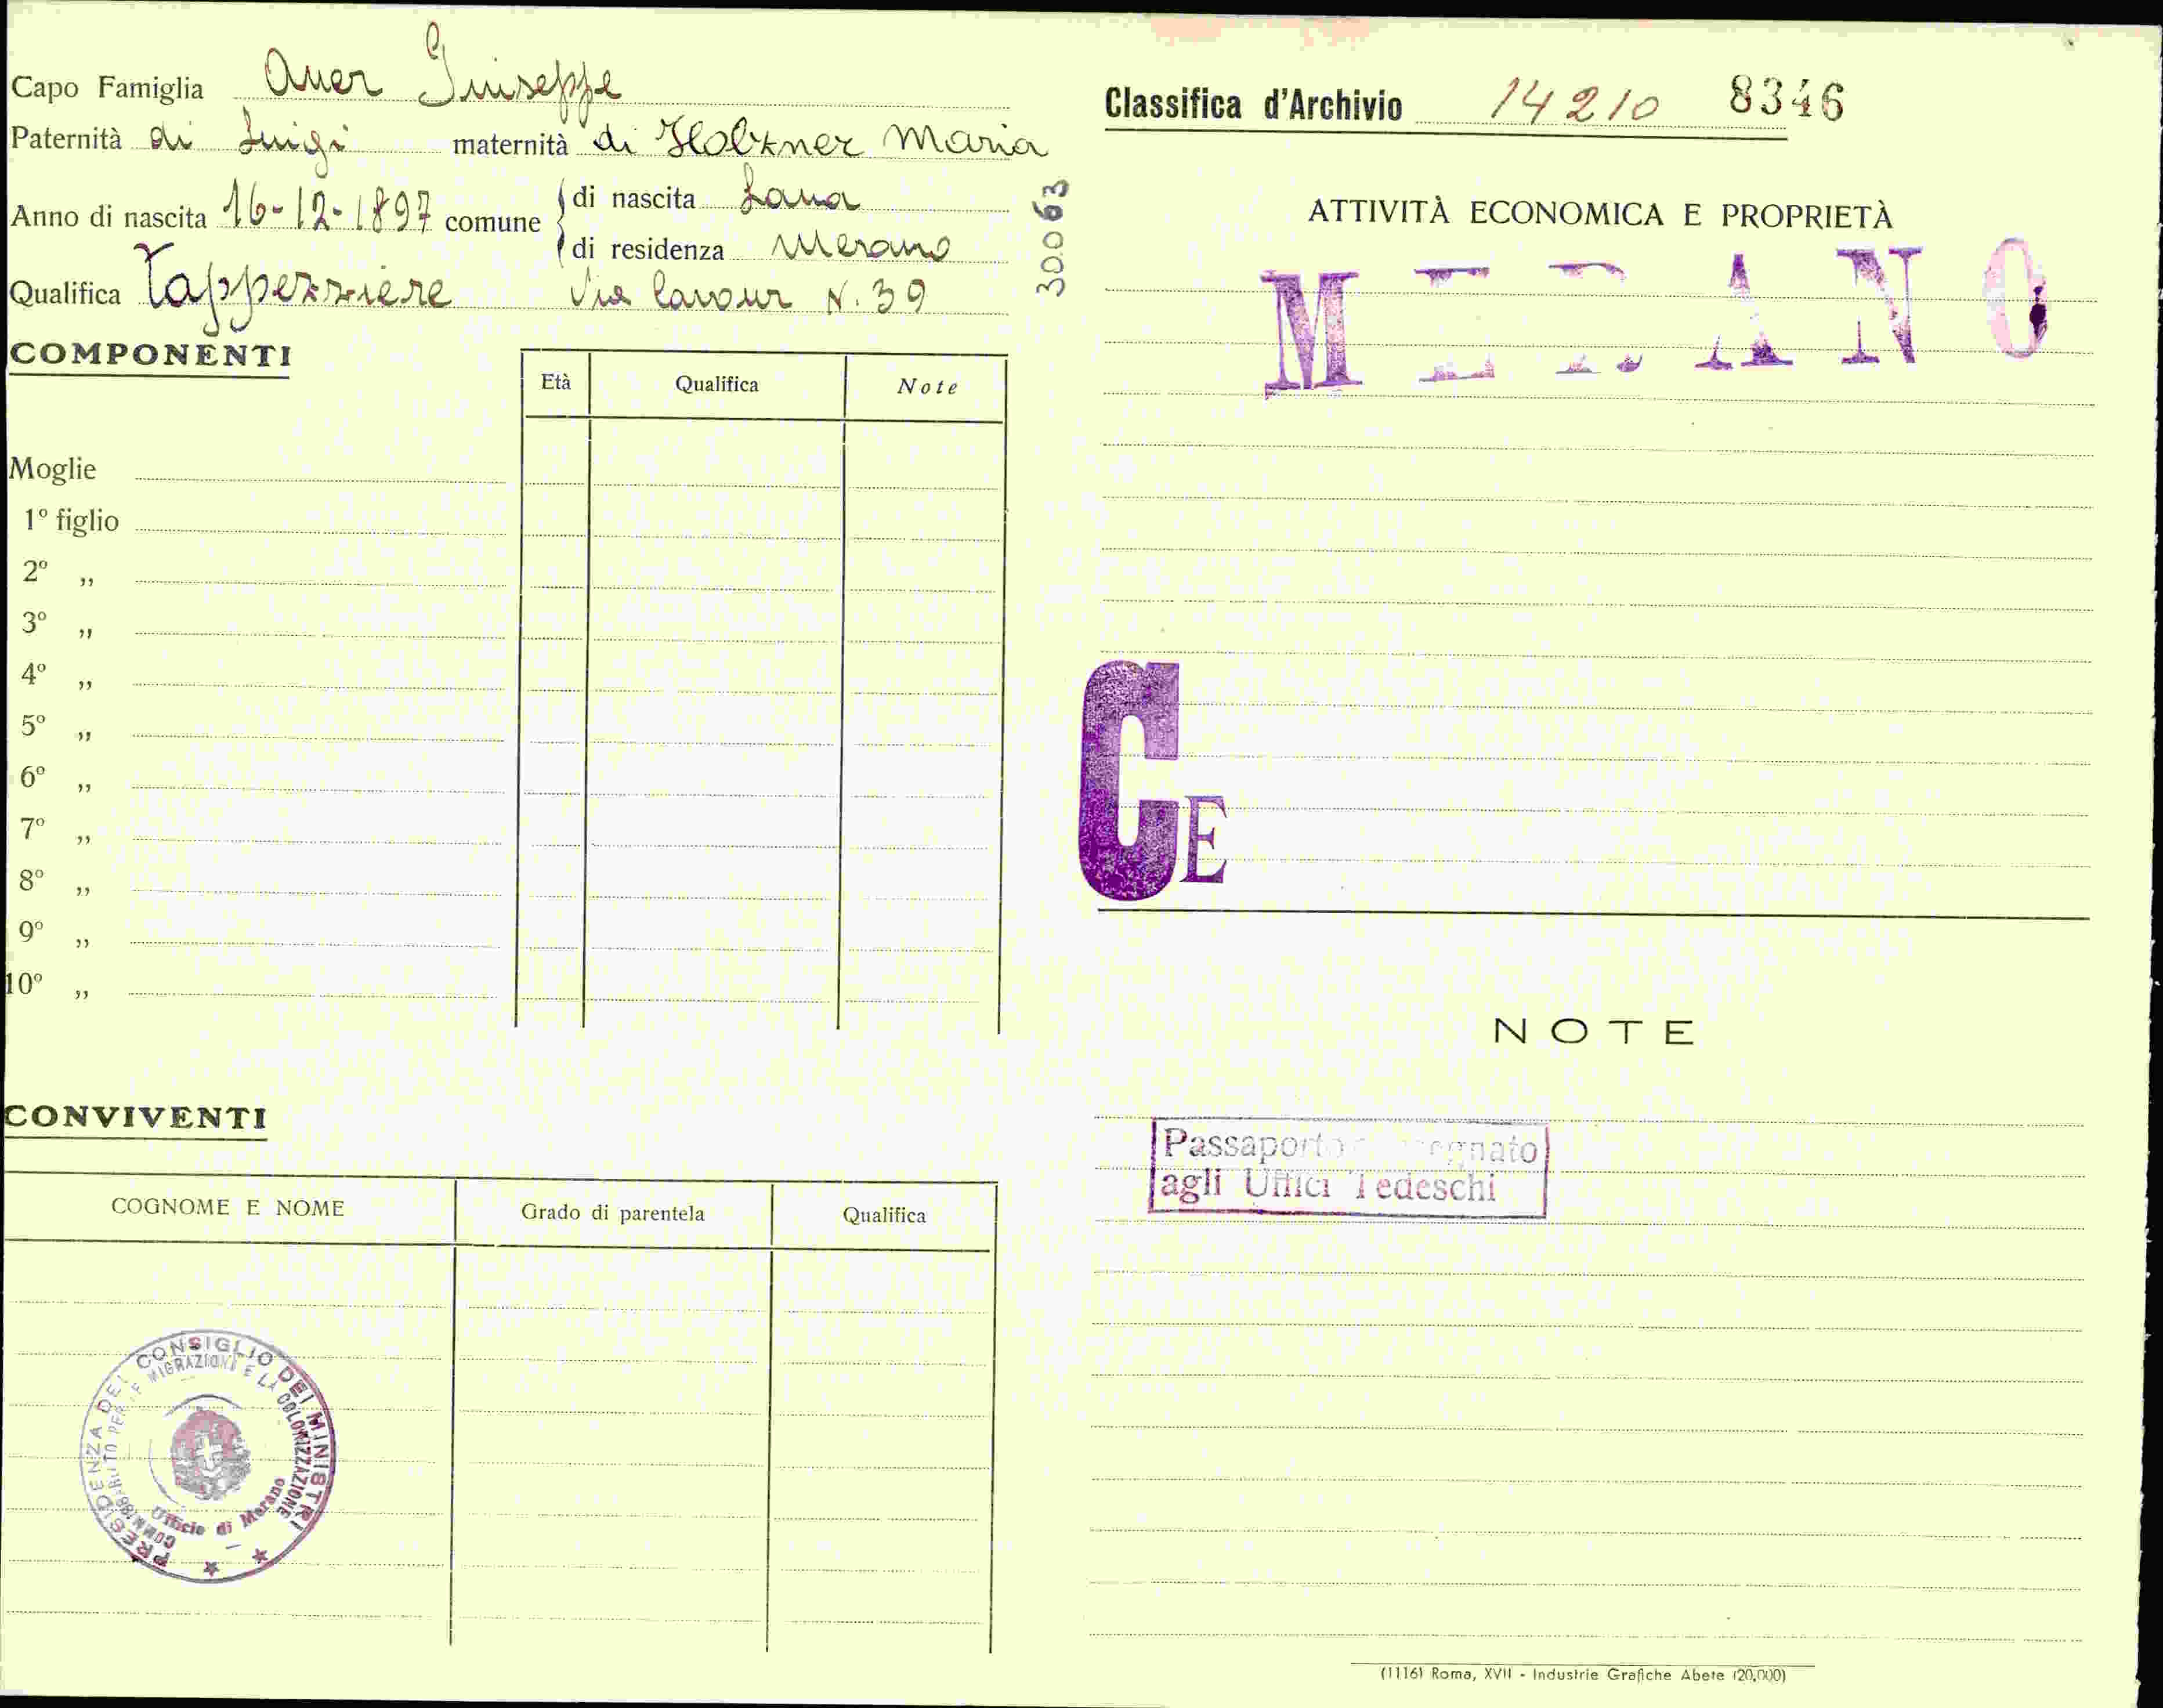 Capo Famiglia Auer Giuseppe
Paternità di Luigi maternità di Holzner Maria
Anno di nascita 16-12-1897 comune di nascita Lana
di residenza Merano
Qualifica Tappezziere Via Cavour N. 39
30063
COMPONENTI
Età Qualifica Note
Moglie
1º figlio
2º „
3º „
4º „
5º „
6º „
7º „
8º „
9º „
10º „
CONVIVENTI
COGNOME E NOME Grado di parentela Qualifica
PRESIDENZA DEL CONSIGLIO DEI MINISTRI
MIGRAZIONI E LA COLONIZZAZIONE
Ufficio di Merano
Classifica d'Archivio 14210 8346
ATTIVITÀ ECONOMICA E PROPRIETÀ
CE
NOTE
Passaporto
agli Uffici Tedeschi
(1116) Roma, XVII - Industrie Grafiche Abete (20.000)